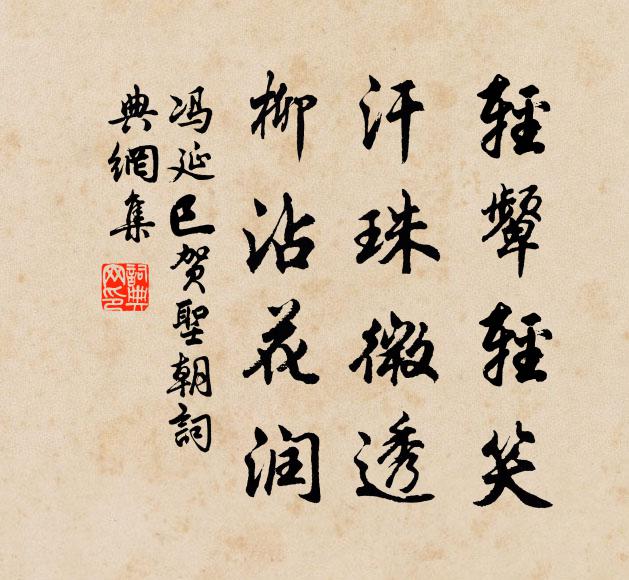 輕顰輕笑
汗珠微透
柳沾花润
冯延巳贺聖朝詞
典網集
詞典
网印